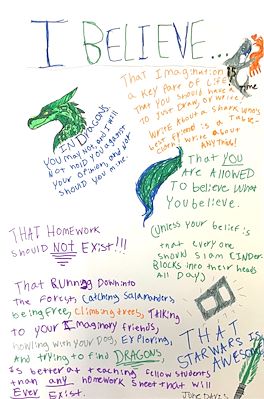 I BELIEVE...
That Imagination is
a Key Part of Life
That you should have a time
to just Draw or Write.
Write About a Shark whos
best friend is a Table-
cloth, write about
ANYThing!
IN DRAGONS,
you may not, and I will
Not hold you against
Your opinion, and not
Should you mine.
That YOU
Are ALLOWED
TO believe what
You believe.
(unless your belief is
that everyone
should slam CINDER
BLOCKS into their heads
All Day)
THAT Homework
should NOT Exist!!!
That Running Down into
the Forest, Catching Salamanders,
being free, climbing trees, Talking
to your Imaginary friends,
howling with your Dog, Exploring,
And trying to find DRAGONS
Is better at teaching fellow students
than any homework sheet that will
Ever Exist.
THAT
STAR WARS is
AWESOME